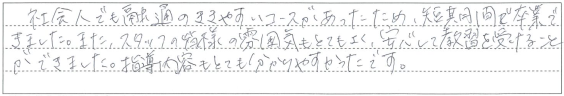 社会人でも融通のききやすいコースがあったため、短期間で卒業で
きました。また、スタッフの皆様の雰囲気もとてもよく、安心して教習を受けること
ができました。指導内容もとても分かりやすかったです。